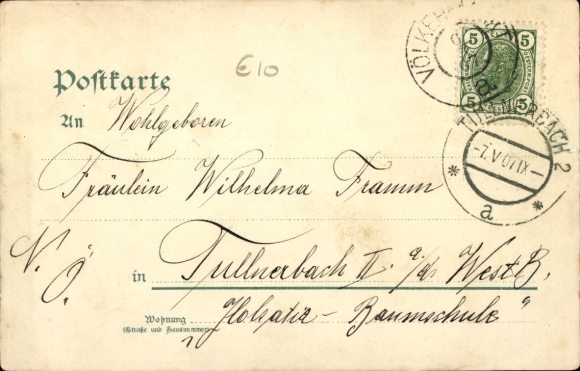 Postkarte
€10
An Wohlgeboren
Fräulein Wilhelma Framm
N. Ö.
in Tullnerbach II a/d West B.
Wohnung
(Straße und Hausnummer)
„Holsatia - Baumschule“
5 5
5 5
VÖLKERM
TULLNERBACH 2
-7.V.07 IX-
* a *